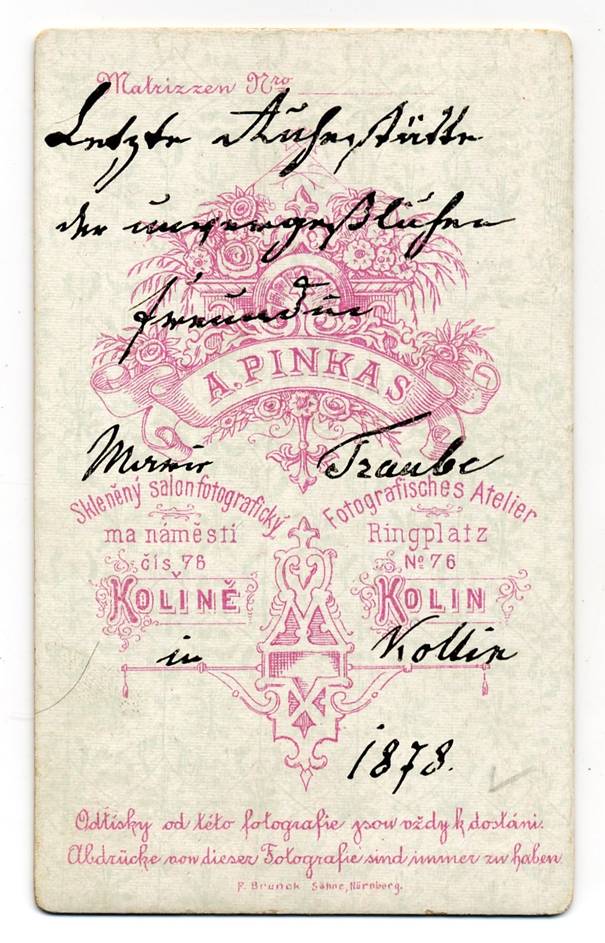 Matrizzen Nro
Letzte Ruhestätte
der unvergeßlichen
Freundin
A. PINKAS
Marie Traube
Skleněný salon fotografický
ma náměstí
čís 76
KOLÍNĚ
Fotografisches Atelier
Ringplatz
No 76
KOLIN
in Kollin
1878.
Odtisky od této fotografie jsou vždy k dostání.
Abdrücke von dieser Fotografie sind immer zu haben
F. Brunck Söhne, Nürnberg.